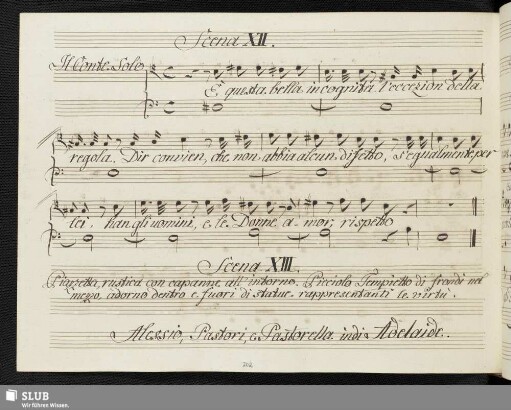 Scena XII.
Il Conte Solo
È questa bella incognita l'eccezion della
regola. Dir convien, che non abbia alcun difetto, s'egualmente per
lei han gli uomini, e le Donne a mor, rispetto
Scena XIII.
Piazzetta rustica con capanne all'intorno. Picciolo Tempietto di frondi nel
mezzo, adorno dentro e fuori di statue rappresentanti le virtù.
Alessio, Pastori, e Pastorella indi Adelaide.
SLUB
Wir führen Wissen.